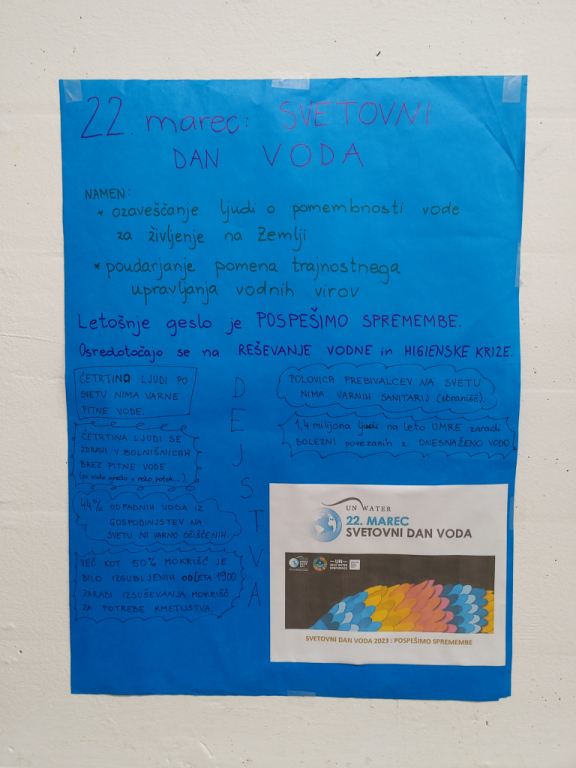 22. marec: SVETOVNI
DAN VODA
NAMEN:
* ozaveščanje ljudi o pomembnosti vode
za življenje na Zemlji
* poudarjanje pomena trajnostnega
upravljanja vodnih virov
Letošnje geslo je POSPEŠIMO SPREMEMBE.
Osredotočajo se na REŠEVANJE VODNE in HIGIENSKE KRIZE.
DEJSTVA
ČETRTINA LJUDI PO
SVETU NIMA VARNE
PITNE VODE.
ČETRTINA LJUDI SE
ZDRAVI V BOLNIŠNICAH
BREZ PITNE VODE
44% ODPADNIH VODA IZ
GOSPODINJSTEV NA
SVETU NI VARNO OČIŠČENIH.
VEČ KOT 50% MOKRIŠČ JE
BILO IZGUBLJENIH OD LETA 1900
ZARADI IZSUŠEVANJA MOKRIŠČ
ZA POTREBE KMETIJSTVA.
POLOVICA PREBIVALCEV NA SVETU
NIMA VARNIH SANITARIJ (stranišč).
1,4 milijona ljudi na leto UMRE zaradi
BOLEZNI povezanih z ONESNAŽENO VODO.
UN WATER
22. MAREC
SVETOVNI DAN VODA
SVETOVNI DAN VODA 2023 : POSPEŠIMO SPREMEMBE